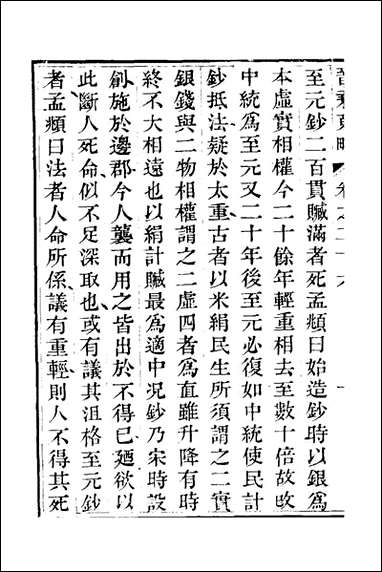 晉乘蒐略 卷之二十六
至元鈔二百貫贓滿者死孟頫曰始造鈔時以銀爲
本虛實相權今二十餘年輕重相去至數十倍故改
中統爲至元又二十年後至元必復如中統使民計
鈔抵法疑於太重古者以米絹民生所須謂之二實
銀錢與二物相權謂之二虛四者爲直雖升降有時
終不大相遠也以絹計贓最爲適中况鈔乃宋時設
創施於邊郡今人襲而用之皆出於不得已廼欲以
此斷人死命似不足深取也或有議其沮格至元鈔
者孟頫曰法者人命所係議有重輕則人不得其死